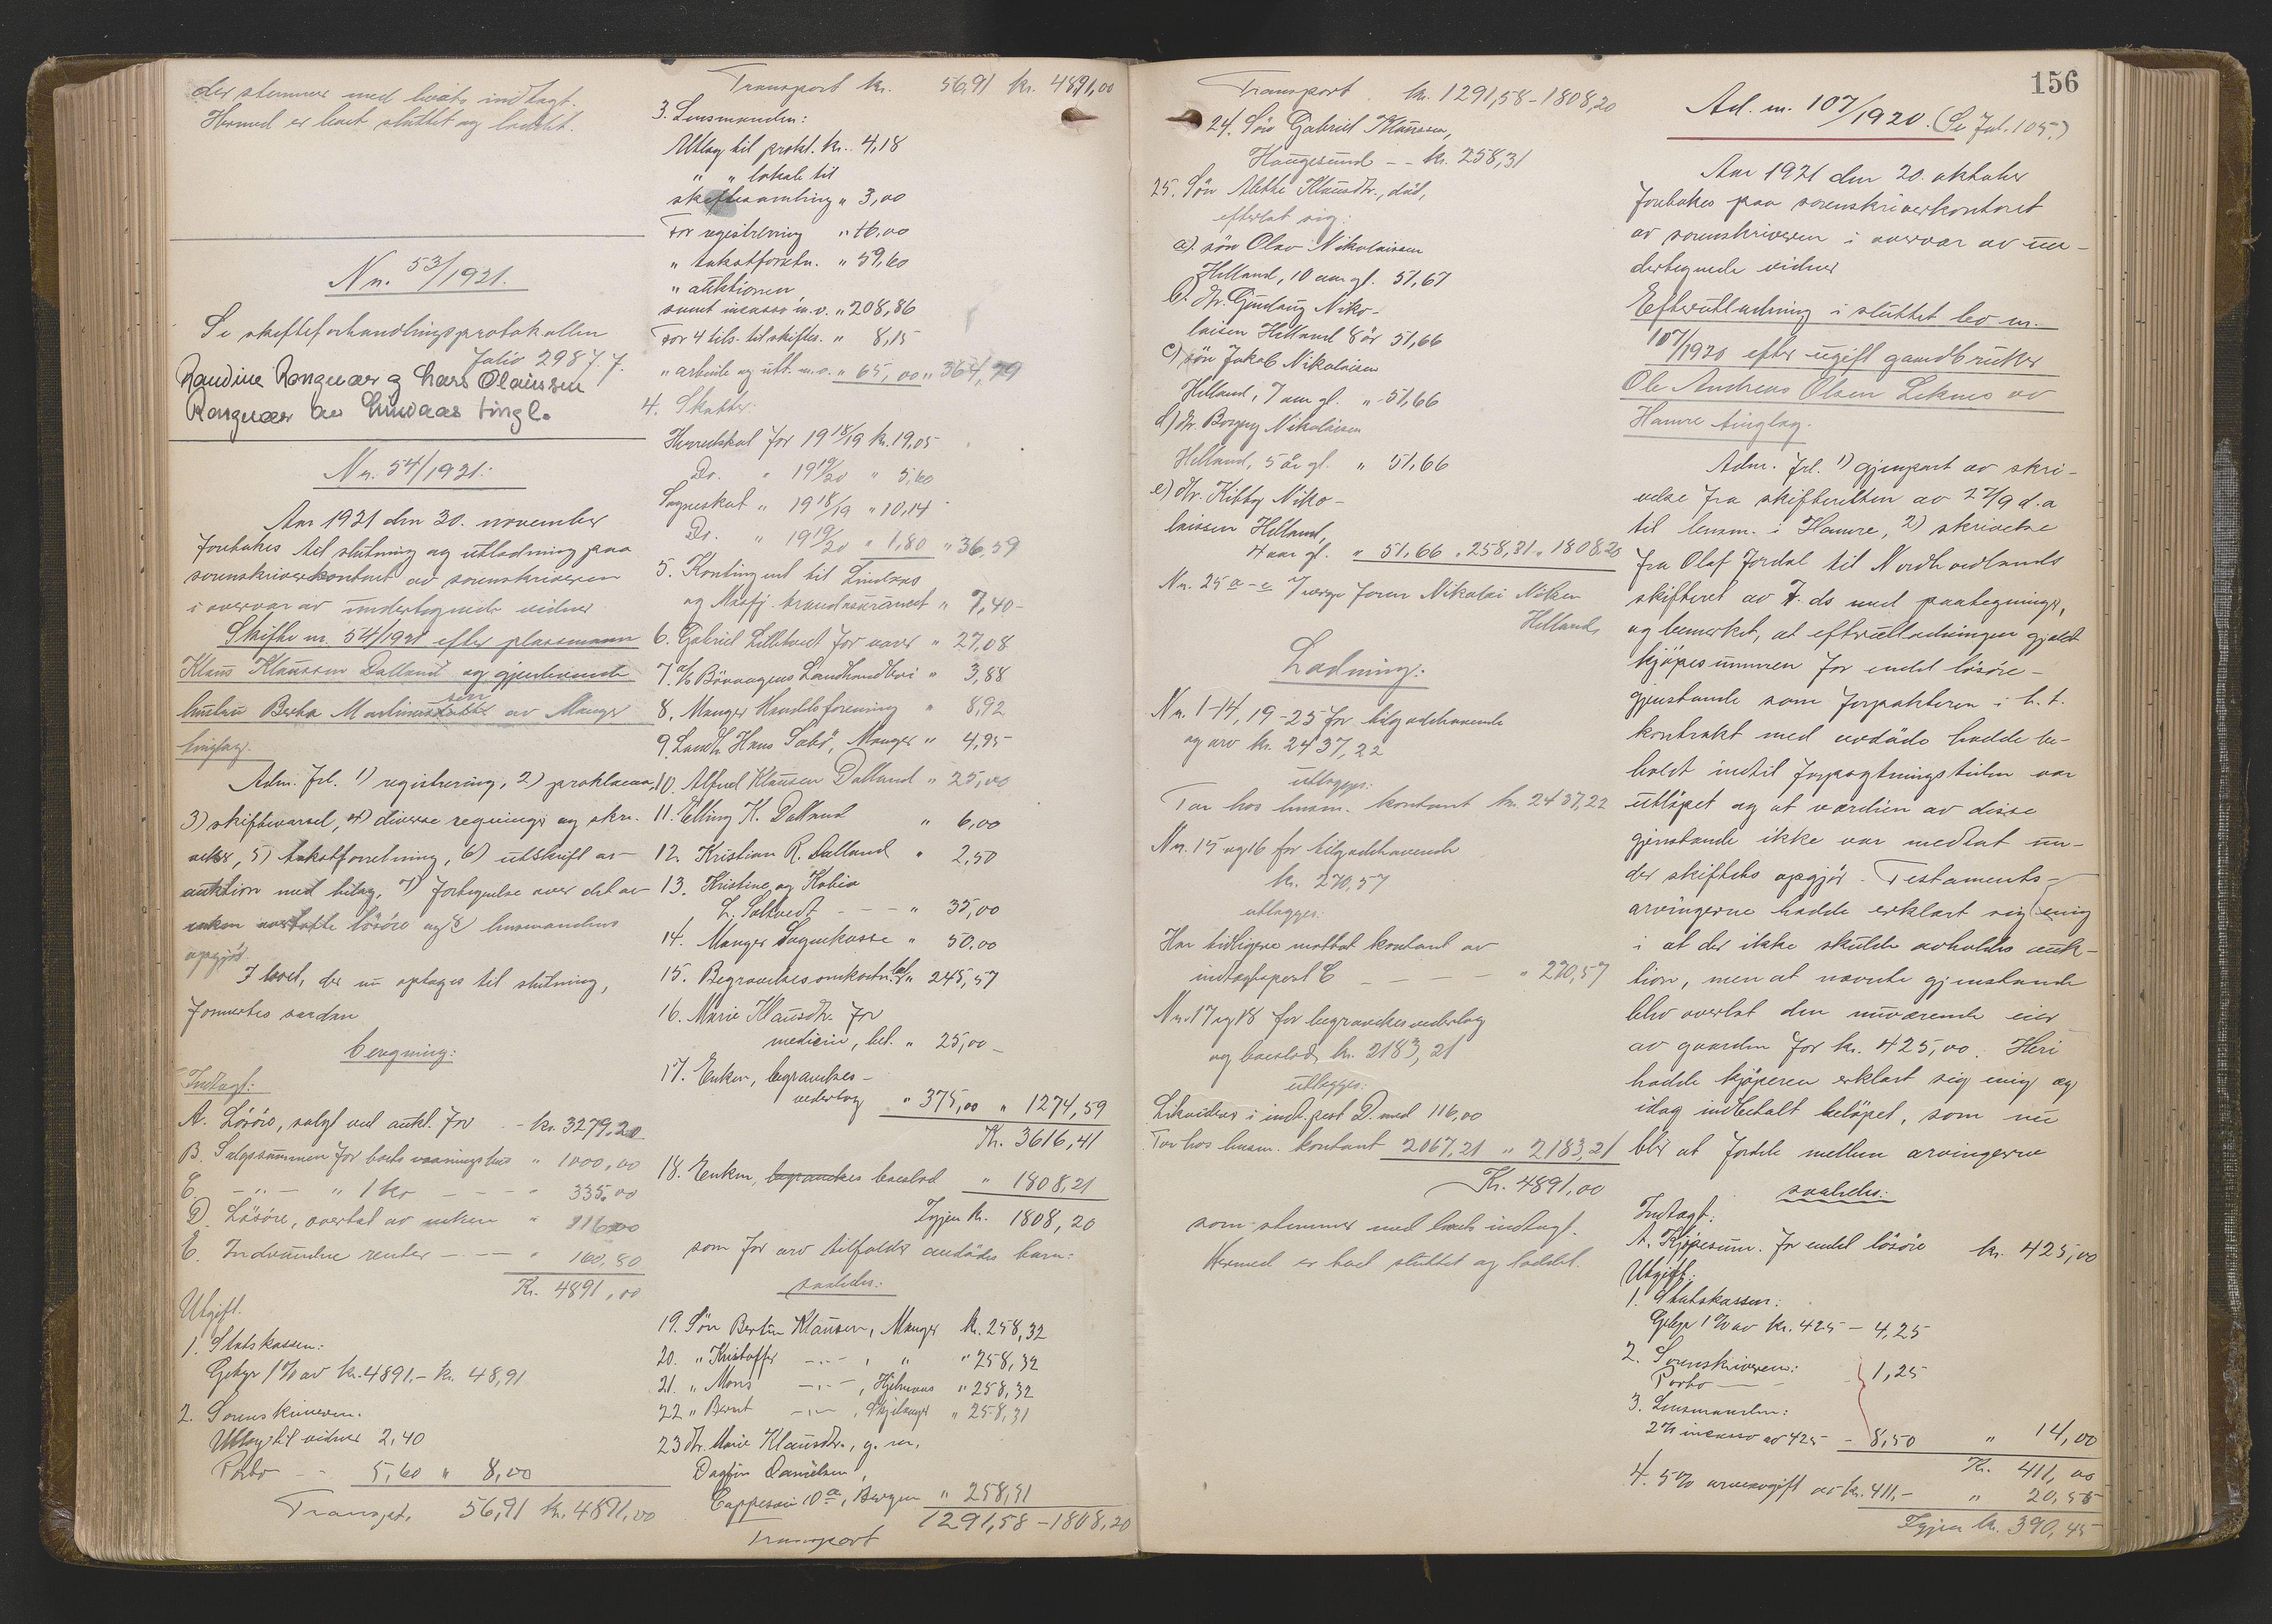 der stemmer med boets indtægt.
Hermed er boet sluttet og loddet.
Nr. 53/1921.
Se skifteforhandlingsprotokollen
folio 298 f. f.
Raudine Rongvær g Lars Olaissen
Rongvær av Lindaas tingl.
Nr. 54/1921:
Aar 1921 den 30. november
foretokes til slutning og utlodning paa
sorenskriverkontoret av sorenskriveren
i overvær av undertegnede vidner
Skifte nr. 54/1921 efter plassmann
Klaus Klaussen Dalland og gjenlevende
hustru Bertha Martinusdatter av Manger
tinglag.
Adm. frl. 1) registrering, 2) proklama,
3) skiftevarsel, 4) diverse regninger og skri-
velser, 5) takstforretning, 6) utskrift av
auktion med bilag, 7) fortegnelse over det av
enken overtatte lösöre og 8) lensmandens
opgjör.
I boet, der nu optages til slutning,
formertes saadan
beregning:
Indtægt:
A. Lösöre, solgt ved aukt. for - kr. 3279,20
B. Salgssummen for boets vaaningshus " 1000,00
C. - " - " 1 ko - - - " 335,00
D. Lösöre, overtat av enken " 116,00
E. Indvundne renter - - - " 160,80
Kr. 4891,00
Utgift.
1. Statskassen:
Gebyr 1% av kr. 4891.- kr. 48,91
2. Sorenskriveren.
Utlæg til vidner 2,40
Porto - - 5,60 " 8,00
Transpt. 56,91 kr. 4891,00
Transport kr. 56,91 kr. 4891,00
3. Lensmanden:
Utlæg til prokl. kr. 4,18
" " lokale til
skiftesamling " 3,00
For registrering " 16,00
" takstforretn. " 59,60
" auktionen
samt incasso m.v. " 208,86
For 4 tils. til skiftes. " 8,15
" arbeide og utl. m.v. " 65,00 " 364,79
4. Skatter:
Herredskat for 1918/19 kr. 19,05
Do. " 1919/20 " 5,60
Sogneskat " 1918/19 " 10,14
Do. " 1919/20 " 1,80 " 36,59
5. Kontingent til Lindaas
og Masfj. brandassurance " 7,40
6. Gabriel Lilletvedt for varer " 27,08
7. A/S Bövaagens Landhandleri " 3,88
8. Manger Handelsforening " 8,92
9. Landh. Hans Sæbö, Manger " 4,95
10. Alfred Klausen Dalland " 25,00
11. Elling K. Dalland " 6,00
12. Kristian R. Dalland " 2,50
13. Kristine og Kobia
L. Saltvedt - - - " 35,00
14. Manger Sognekasse " 50,00
15. Begravelsesomkostn. bet. " 245,57
16. Marie Klausdtr. for
medicin, bet. " 25,00
17. Enken, begravelses-
vederlag " 375,00 " 1274,59
Kr. 3616,41
18. Enken, begravelses boeslod " 1808,21
Igjen kr. 1808,20
som for arv tilfalder avdödes barn:
saaledes:
19. Sön Bertin Klausen, Manger kr. 258,32
20. " Kristoffer - " - , " " 258,32
21. " Mons - " - , Hjelmaas " 258,32
22. " Bernt - " - , Skjelanger " 258,31
23. dtr. Marie Klausdtr., g. m.
Dagfin Danielsen,
Cappesvei 10 a, Bergen " 258,31
Transport 1291,58 - 1808,20
156
Transport kr. 1291,58 - 1808,20
24. Sön Gabriel Klaussen,
Haugesund - - kr. 258,31
25. Sön Alethe Klausdtr., död,
efterlat sig:
a). sön Olav Nikolaissen
Helland, 10 aar gl. 51,67
b). dtr. Gudlaug Niko-
laisen Helland 8 år 51,66
c) sön Jakob Nikolaisen
Helland, 7 aar gl. " 51,66
d) dtr. Borgny Nikolaisen
Helland, 5 år gl. " 51,66
e) dtr. Kitty Niko-
laissen Helland,
4 aar gl. " 51,66 " 258,31 " 1808,20
Nr. 25 a-e værge faren Nikolai Nilsen
Helland,
Lodning:
Nr. 1-14, 19-25 for tilgodehavende
og arv kr. 2437,22
utlægges:
Tar hos lensm. kontant kr. 2437,22
Nr. 15 og 16 for tilgodehavende
kr. 270,57
utlægges:
Har tidligere mottat kontant av
indtægtspost C - - - " 270,57
Nr. 17 og 18 for begravelsesvederlag
og boeslod kr. 2183,21
utlægges:
Likvideres i indt. post D. med 116,00
Tar hos lensm. kontant 2067,21 " 2183,21
Kr. 4891,00
som stemmer med boets indtægt.
Hermed er boet sluttet og loddet.
Ad. nr. 107/1920. (Se fol. 105.)
Aar 1921 den 20. oktober
foretokes paa sorenskriverkontoret
av sorenskriveren i overvær av un-
dertegnede vidner
Efterutlodning i sluttet bo nr.
107/1920 efter ugift gaardbruker
Ole Andreas Olsen Leknes av
Hamre tinglag.
Adm. frl. 1) gjenpart av skri-
velse fra skifteretten av 27/9 d.a
til lensm. i Hamre, 2) skrivelse
fra Olaf Jordal til Nordhordlands
skifteret av 7. ds med paategninger,
og bemerket, at efterutlodningen gjaldt
kjöpesummen for endel lösöre-
gjenstande som forpakteren i h. t.
kontrakt med avdöde hadde be-
holdt indtil forpagtningstiden var
utlöpet og at værdien av disse
gjenstande ikke var medtat un-
der skiftets opgjör. Testaments-
arvingerne hadde erklært sig enig
i at der ikke skulde avholdes auk-
tion, men at nævnte gjenstande
blev overlat den nuværende eier
av gaarden for kr. 425,00. Heri
hadde kjöperen erklært sig enig og
idag indbetalt belöpet, som nu
blir at fordele mellem arvingerne
saaledes:
Indtægt:
A. Kjöpesum. for endel lösöre kr. 425,00
Utgift:
1. Statskassen:
Gebyr 1% av kr. 425 - 4,25
2. Sorenskriveren:
Porto - - 1,25
3. Lensmanden:
2% incasso av 425 - 8,50 " 14,00
Kr. 411,00
4. 5% arveavgift av kr. 411,- " 20,55
Igjen kr. 390,45